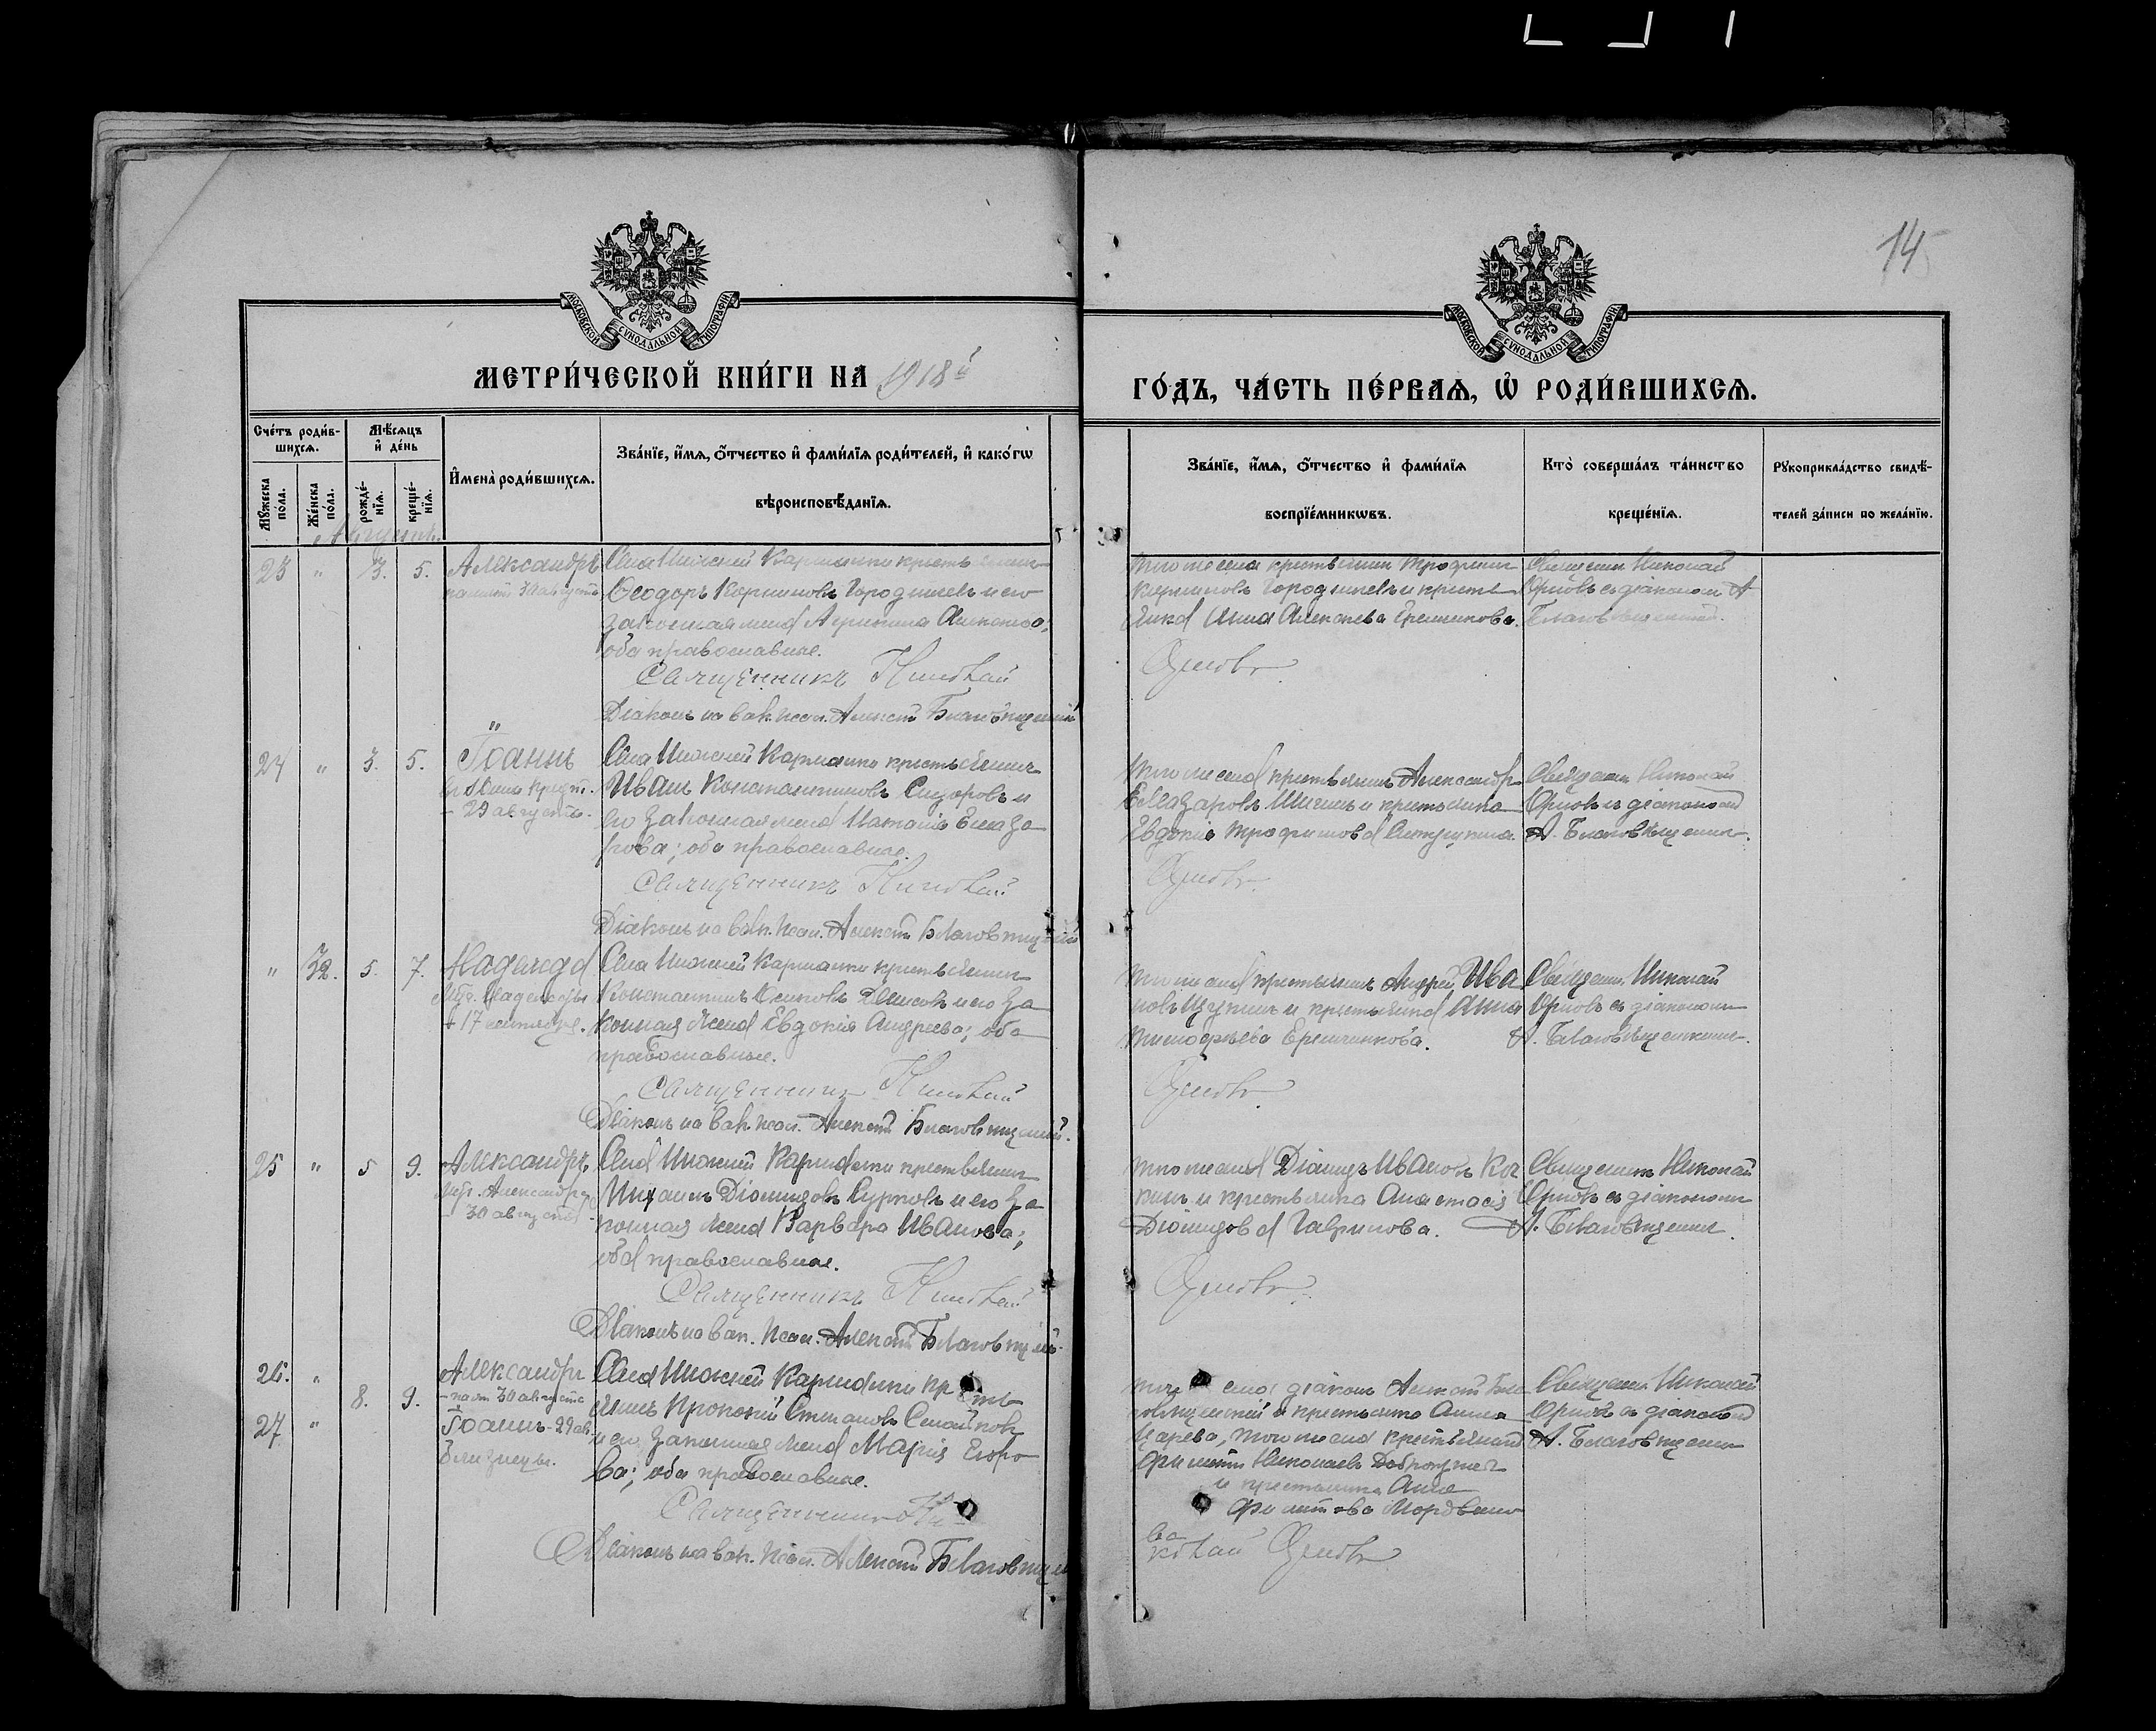 14
МОСКОВСКОЙ СѴНОДАЛЬНОЙ ТИПОГРАФІИ
МОСКОВСКОЙ СѴНОДАЛЬНОЙ ТИПОГРАФІИ
МЕТРИ́ЧЕСКОЙ КНИ́ГИ НА 1918й
ГО́ДЪ, ЧА́СТЬ ПЕ́РВАѦ, Ѡ҆ РОДИ́ВШИХСѦ.
Сче́тъ роди́в-
шихсѧ.
Мꙋ́жеска по́ла.
Же́нска по́ла.
Мѣ́сѧцъ
и҆ де́нь
рожде́-
нїѧ.
креще́-
нїѧ.
И҆мена̀ роди́вшихсѧ.
Зва́нїе, и҆́мѧ, ѻ҆́тчество и҆ фами́лїѧ роди́телей, и҆ како́гѡ
вѣроисповѣ́данїѧ.
Зва́нїе, и҆́мѧ, ѻ҆́тчество и҆ фами́лїѧ
воспрїе́мникѡвъ.
Кто̀ соверша́лъ та́инство
креще́нїѧ.
Рꙋкоприкла́дство свидѣ́-
телей за́писи по жела́нїю.
Августъ.
23 " 3. 5. Александръ
память 30 августа
Села Нижней Кармалки крестьянинъ
Ѳеодоръ Городничевъ и его
законная жена Агрипина
оба православные.
Священникъ Николай
Діаконъ на вак. псал. Алексѣй Благовѣщенскій
того же села крестьянинъ Трофимъ
Городничевъ и крестьян
Анна Алексѣева Еремчинкова.
Орловъ
Священникъ Николай
Орловъ съ діакономъ А
Благовѣщенскимъ.
24 " 3. 5. Іоаннъ
29 августа.
Села Нижней Кармалки крестьянинъ
Иванъ Константиновъ Сидоровъ и
его законная жена Наталія Елеаза
рова; оба православные.
Священникъ Николай
Діаконъ на вак. псал. Алексѣй Благовѣщенскій
того же села крестьянинъ Александръ
Елеазаровъ и крестьянка
Евдокія Трофимова
Орловъ
Священ. Николай
Орловъ съ діакономъ
А. Благовѣщенским.
" 12. 5. 7. Надежда
Муч. Надежды
17 сентября.
Села Нижней Кармалки крестьянин
Константинъ Осиповъ Денисовъ и его за
конная жена Евдокія Андреева; оба
православные.
Священникъ Николай
Діаконъ на вак. псал. Алексѣй Благовѣщенскій.
того же села крестьянинъ Андрей Ива
новъ Щукинъ и крестьянка Анна
Тимофѣева Еремчинкова.
Орловъ
Священ. Николай
Орловъ съ діакономъ
А. Благовѣщенским.
25 " 5 9. Александръ
Александра
30 августа
Села Нижней Кармалки крестьянин
Михаилъ Діомидовъ Сурковъ и его за
конная жена Варвара Иванова;
оба православные.
Священникъ Николай
Діаконъ на вак. псал. Алексѣй Благовѣщен
того же села Діомидъ Ивановъ
и крестьянка Анастасія
Діомидова Гаврилова.
Орловъ
Священникъ Николай
Орловъ съ діакономъ
А. Благовѣщенским.
26. " 8. 9. Александръ
пам. 30 августа
27 " Іоаннъ - 29 ав.
Близнецы.
Села Нижней Кармалки кресть
янинъ Прокопій Степановъ
и его законная жена Марія Егоро
ва; оба православные.
Священникъ Ни
Діаконъ на вак. псал. Алексѣй Благовѣщен
того села діаконъ Алексѣй Бла
говѣщенскій и крестьянка Анна
того же села крестьянинъ
Филиппъ Николаевъ
и крестьянка Анна
Филиппова Мордвино
ва
колай Орловъ
Священ. Николай
Орловъ съ діакономъ
А. Благовѣщенским